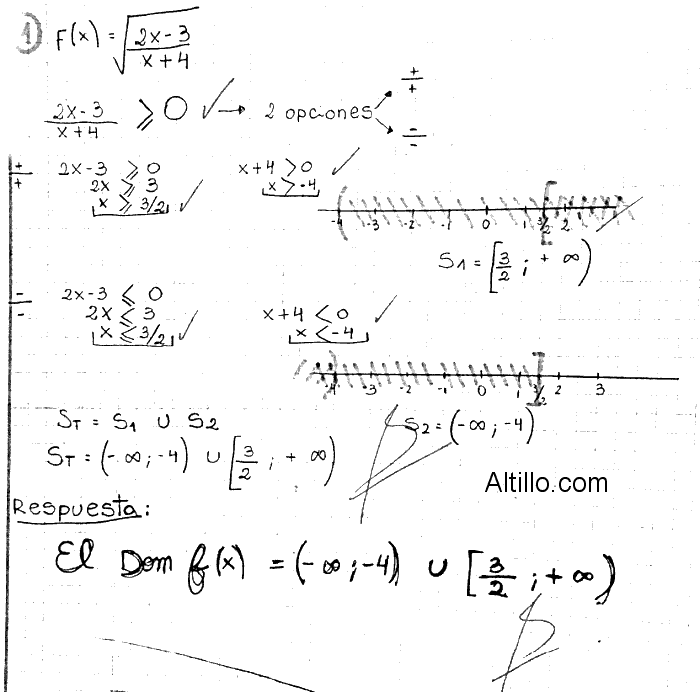 1) F(x) = √((2x-3)/(x+4))
(2x-3)/(x+4) ⩾ 0 ✓ → 2 opciones +/+ -/-
+/+ 2x-3 ⩾ 0 x+4 > 0 ✓
2x ⩾ 3 x > -4
x ⩾ 3/2 ✓
-4 -3 -2 -1 0 1 3/2 2
S1 = [3/2 ; +∞)
-/- 2x-3 ⩽ 0
2x ⩽ 3 x+4 < 0 ✓
x ⩽ 3/2 ✓ x < -4
-4 -3 -2 -1 0 1 3/2 2 3
ST = S1 U S2 S2 = (-∞ ; -4)
ST = (-∞ ; -4) U [3/2 ; +∞)
Altillo.com
Respuesta:
El Dom f(x) = (-∞ ; -4) U [3/2 ; +∞)